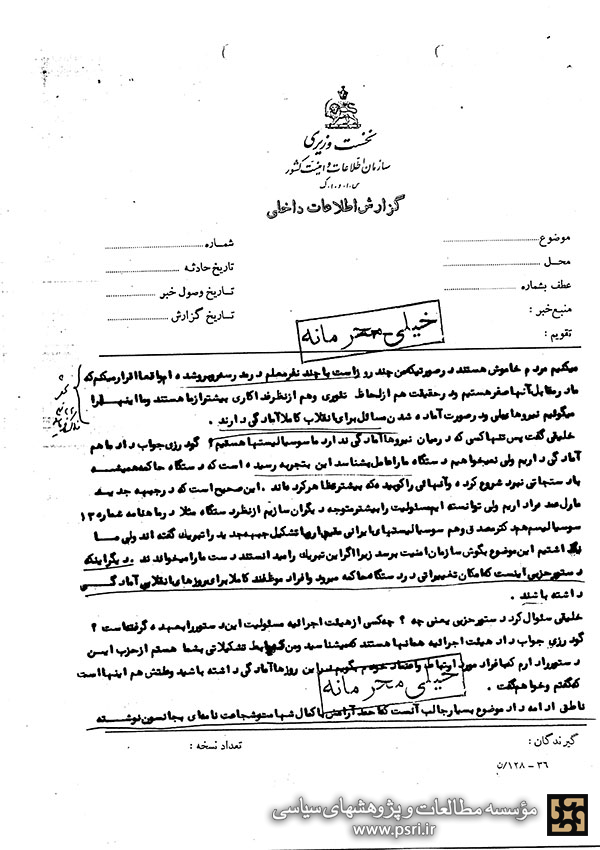 نخست وزیری
سازمان اطلاعات و امنیت کشور
س.ا.و.ا.ک
گزارش اطلاعات داخلی
موضوع
شماره
محل
تاریخ حادثه
عطف بشماره
تاریخ وصول خبر
منبع خبر :
تاریخ گزارش
تقویم :
خیلی محرمانه
میکنیم مردم خاموش هستند در صورتیکه من چند روز است با چند نفر معلم در مدرسه روبرو شده ام واقعا اقرار میکنم که
ما در مقابل آنها صفر هستیم و در حقیقت هم از لحاظ تئوری و هم از نظر فداکاری بیشتر از ما هستند و ما اینها را
میگوئیم نیروهای ملی و در صورت آماده شدن مسائل برای انقلاب کاملا آمادگی دارند .
خلیقی گفت پس تنها کسی که در میان نیروها آمادگی ندارد ما سوسیالیستها هستیم ؟ گودرزی جواب داد ما هم
آمادگی داریم ولی نمیخواهیم دستگاه ما را عامل بشناسد این بتجربه رسیده است که دستگاه حاکمه همیشه
با دستجاتی نبرد شروع کرده و آنهائی را کوبیده که بیشتر تظاهر کرده اند . این صحیح است که در جبهه جدید
ما رل عمده را داریم ولی توانسته ایم مسئولیت را بیشتر متوجه دیگران سازیم از نظر دستگاه مثلا در ماهنامه شماره ۱۳
سوسیالیسم هم دکتر مصدق و هم سوسیالیستهای ایرانی مقیم اروپا تشکیل جبهه جدید را تبریک گفته اند ولی ما
نگذاشتیم این موضوع بگوش سازمان امنیت برسد زیرا اگر این تبریک را میدانستند دست ما را میخواندند . دیگر اینکه
دستور حزبی اینست که امکان تغییراتی در دستگاه حاکمه میرود و افراد موظفند کاملا برای روزهای انقلابی آمادگی
داشته باشند .
خلیقی سئوال کرد دستور حزبی یعنی چه ؟ چه کسی از هیئت اجرائیه مسئولیت این دستور را بعهده گرفته است ؟
گودرزی جواب داد هیئت اجرائیه همانها هستند که میشناسید و من که رابط تشکیلاتی بشما هستم از حزب این
دستور را دارم که بافراد مورد ارتباط و اعتماد خودم بگویم برای این روزها آمادگی داشته باشید وظیفه من هم اینها است
که گفتم و خواهم گفت .
خیلی محرمانه
ناطق ادامه داد موضوع بسیار جالب آنست که احمد آرامش با کمال شهامت و شجاعت نامه ای بجانسون نوشته
گیرندگان :
تعداد نسخه :
۳۶ - ۱۲۸/ن
مؤسسه مطالعات و پژوهشهای سیاسی
www.psri.ir